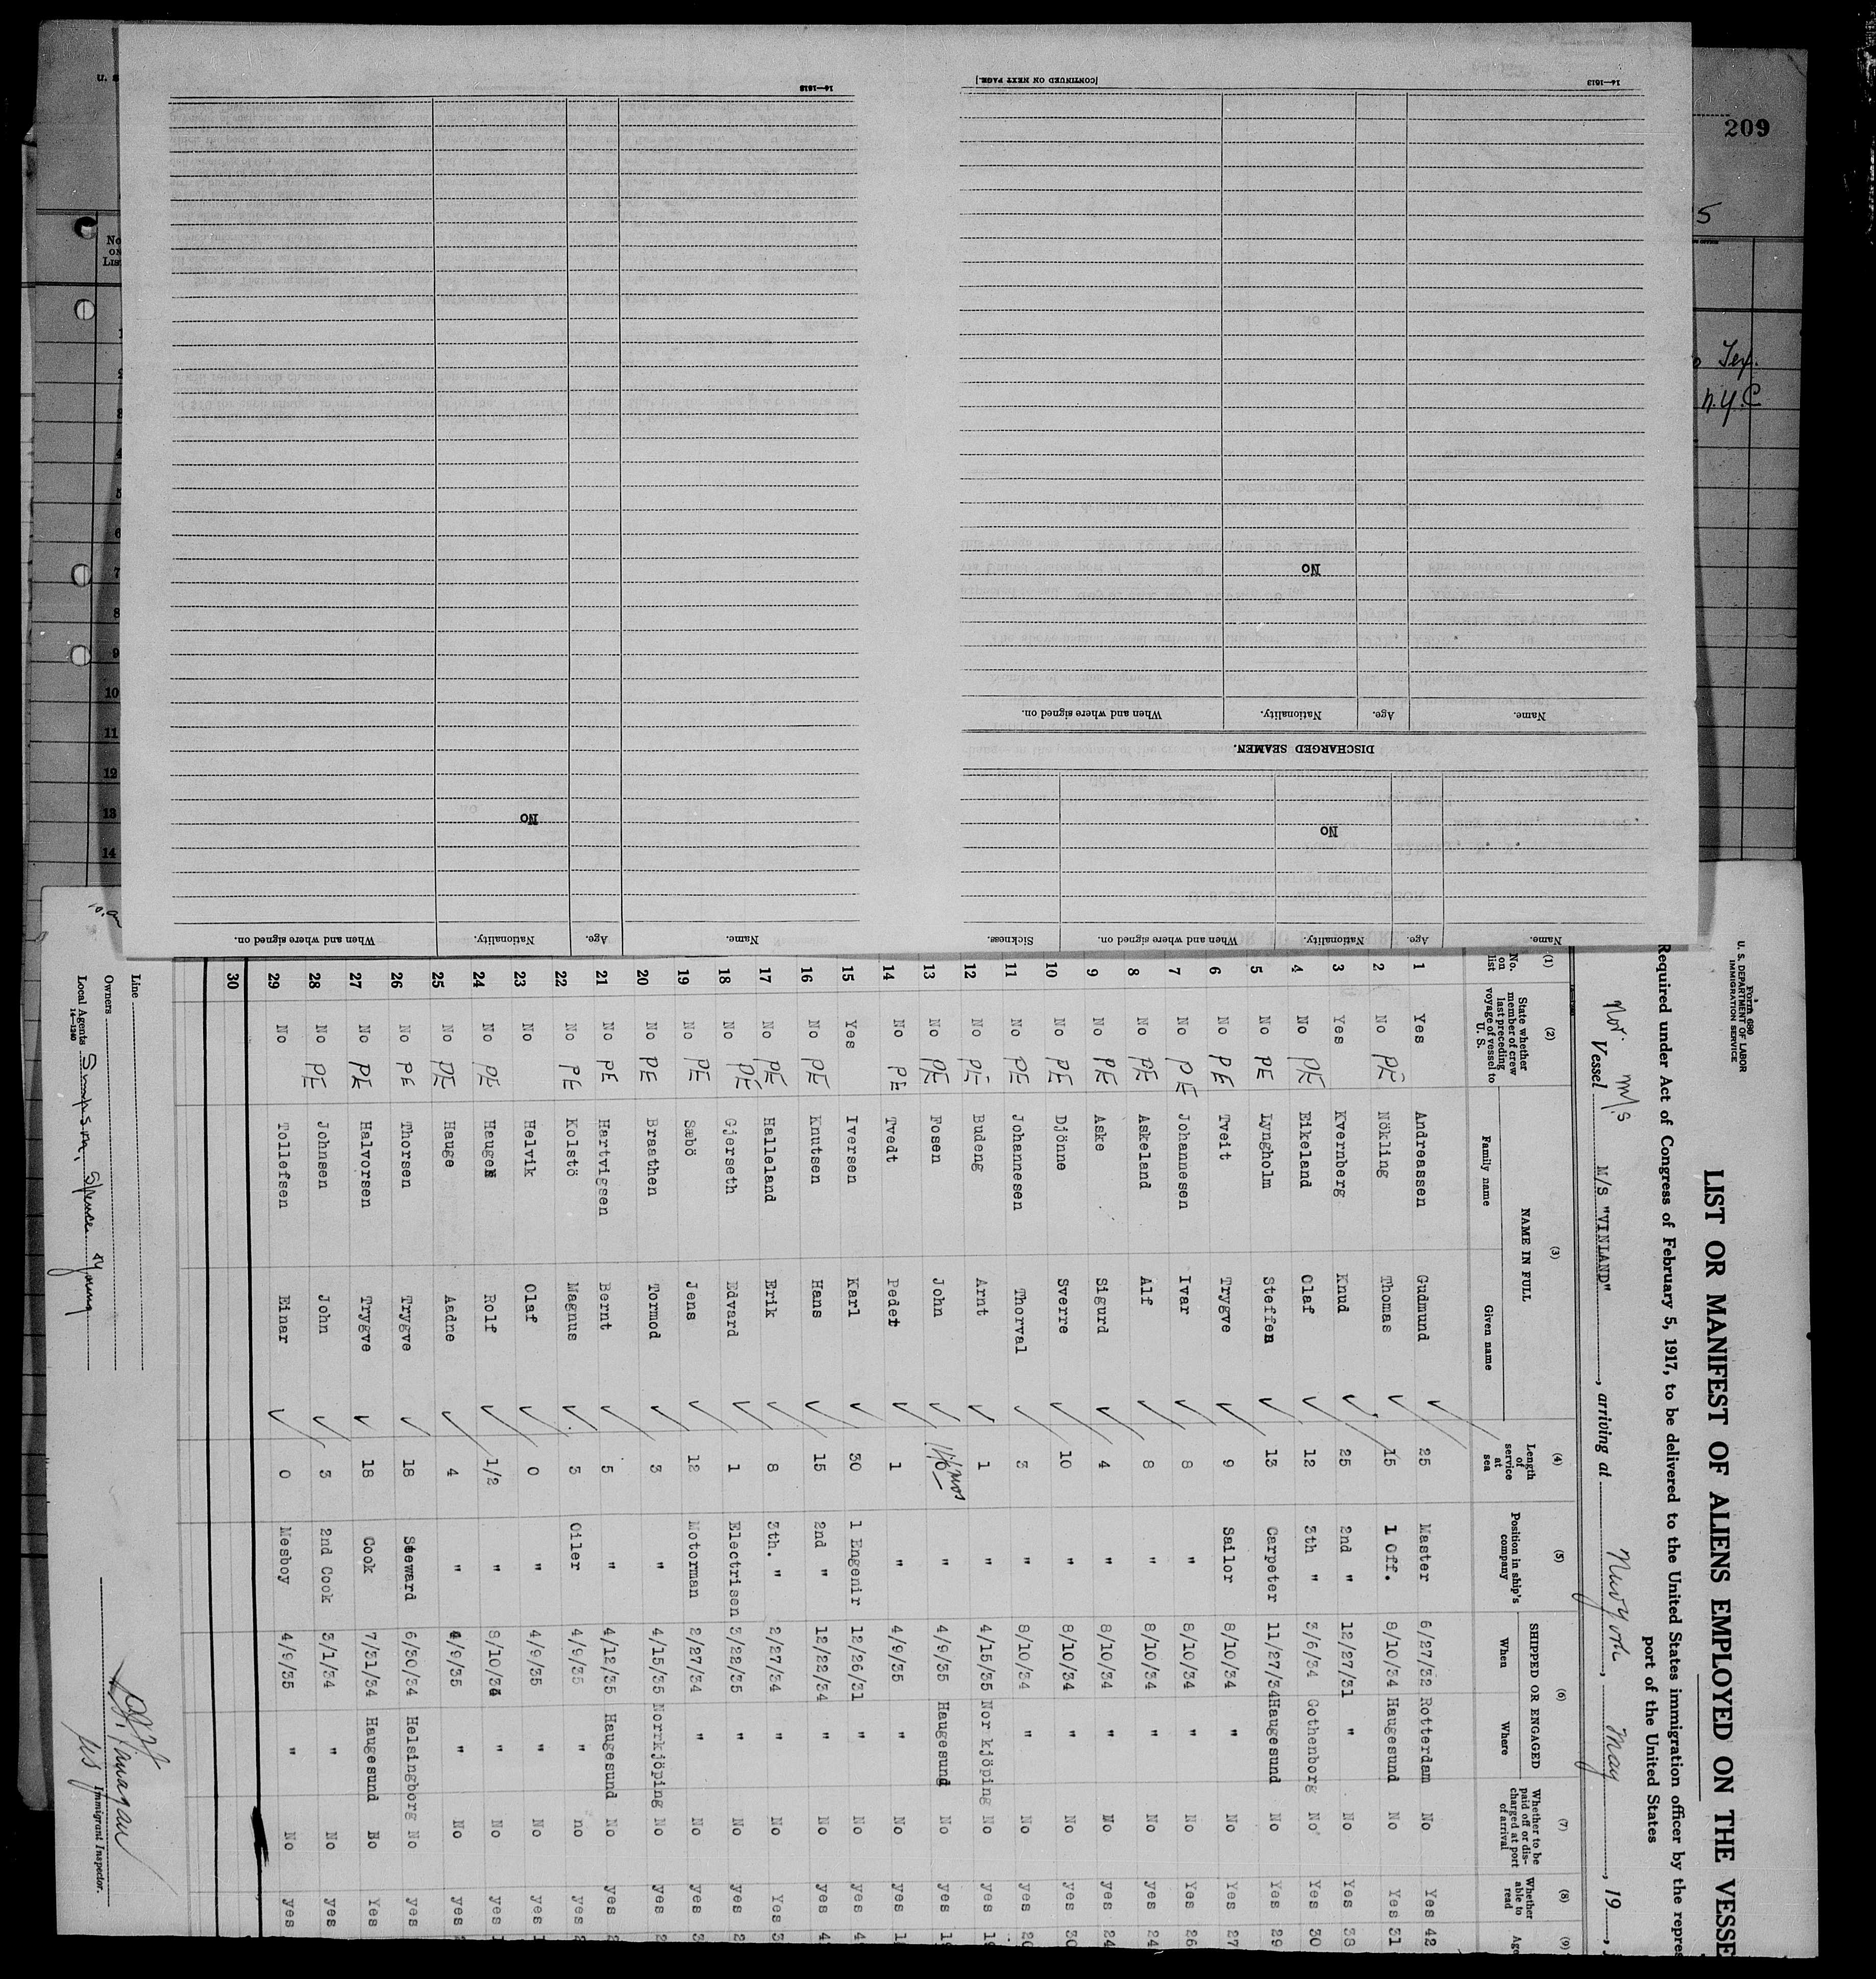 209
5
Tex.
N.Y.C
U. S
No
on
Lis
1
2
3
4
5
6
7
8
9
10
11
12
13
14
14—1613
[CONTINUED ON NEXT PAGE.]
14—1613
No
Name. Age. Nationality. When and where signed on.
DISCHARGED SEAMEN.
No
No
Name. Age. Nationality. When and where signed on. Sickness.
Name. Age. Nationality. When and where signed on.
Form 680
U. S. DEPARTMENT OF LABOR
IMMIGRATION SERVICE
LIST OR MANIFEST OF ALIENS EMPLOYED ON THE VESSE
Required under Act of Congress of February 5, 1917, to be delivered to the United States immigration officer by the repres
port of the United States
Nor. M/S
Vessel M/S "VINLAND", arriving at New York, May, 19
(1) (2) (3) (4) (5) (6) (7) (8) (9)
No. on list
State whether member of crew last preceding voyage of vessel to U. S.
NAME IN FULL
Family name Given name
Length of service at sea
Position in ship's company
SHIPPED OR ENGAGED
When Where
Whether to be paid off or discharged at port of arrival
Whether able to read
Age
1 Yes Andreassen Gudmund 25 Master 6/27/32 Rotterdam No Yes 42
2 No PE Nökling Thomas 15 1 Off. 8/10/34 Haugesund No Yes 31
3 Yes Kvernberg Knud 25 2nd " 12/27/31 " No Yes 38
4 No PE Eikeland Olaf 12 3th " 3/6/34 Gothenborg No Yes 30
5 No PE Lyngholm Steffen 13 Carpeter 11/27/34 Haugesund No Yes 29
6 No PE Tveit Trygve 9 Sailor 8/10/34 " No Yes 27
7 No PE Johannesen Ivar 8 " 8/10/34 " No Yes 26
8 No PE Askeland Alf 8 " 8/10/34 " No yes 24
9 No PE Aske Sigurd 4 " 8/10/34 " No yes 24
10 No PE Djönne Sverre 10 " 8/10/34 " No yes 30
11 No PE Johannesen Thorval 3 " 8/10/34 " No yes 20
12 No PE Budeng Arnt 1 " 4/15/35 Nor kjöping No yes 19
13 No PE Fosen John mos " 4/9/35 Haugesund No yes 19
14 No PE Tvedt Peder 1 " 4/9/35 " No yes 18
15 Yes Iversen Karl 30 1 Engenir 12/26/31 " No yes 4
16 No PE Knutsen Hans 15 2nd " 12/22/34 " No yes 4
17 No PE Halleland Erik 8 3th. " 2/27/34 " No Yes 3
18 No PE Gjerseth Edvard 1 Electrisen 3/22/35 " No yes 2
19 No PE Sæbö Jens 12 Motorman 2/27/34 " No yes 3
20 No PE Braathen Tormod 3 " 4/15/35 Norrkjöping No yes 2
21 No PE Hartvigsen Bernt 5 " 4/12/35 Haugesund No yes 2
22 No PE Kolstö Magnus 3 Oiler 4/9/35 " no yes 2
23 No Helvik Olaf 0 " 4/9/35 " No yes 1
24 No PE Haugen Rolf 1/2 " 8/10/34 " No yes 1
25 No PE Hauge Aadne 4 " 4/9/35 " No yes 2
26 No PE Thorsen Trygve 18 Steward 6/30/34 Helsingborg No yes
27 No PE Halvorsen Trygve 18 Cook 7/31/34 Haugesund No Yes
28 No PE Johnsen John 3 2nd Cook 3/1/34 " No yes
29 No Tollefsen Einar 0 Mesboy 4/9/35 " No yes
30
Line
Owners
Local Agents Simpson, Spence & Young
14—1240
Immigrant Inspector.